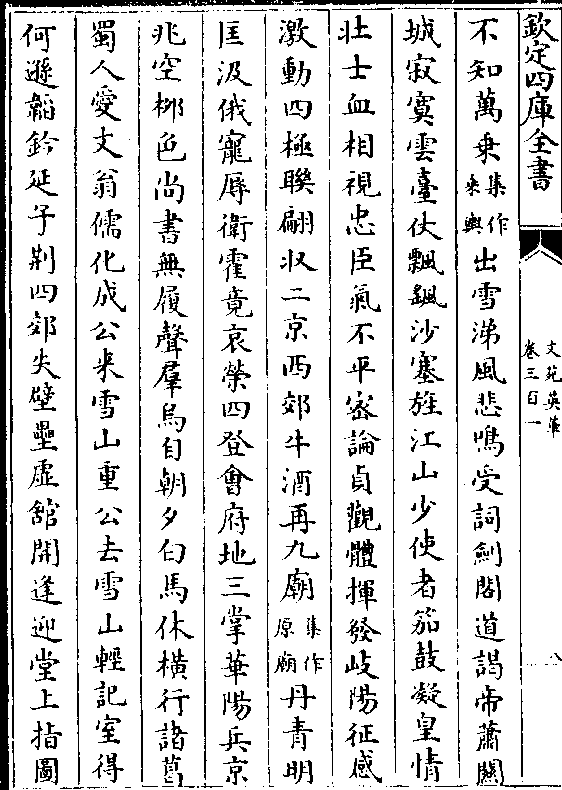 欽定四庫全書
文苑英華
卷三百一
八
不知萬乗集作乗輿出雪涕風悲鳴受詞劍閣道謁帝蕭關
城寂寞雲臺仗飄飖沙塞旌江山少使者笳鼓凝皇情
壮士血相視忠臣氣不平宻論貞觀體揮發岐陽征感
激動四極聨翩收二京西郊牛酒再九廟集作原廟丹青明
匡汲俄寵辱衛霍竟哀榮四登會府地三掌華陽兵京
兆空栁色尚書無履聲羣烏自朝夕白馬休横行諸葛
蜀人愛文翁儒化成公来雪山重公去雪山輕記室得
何遜韜鈐延子荆四郊失壁壘虛舘開逢迎堂上指圖